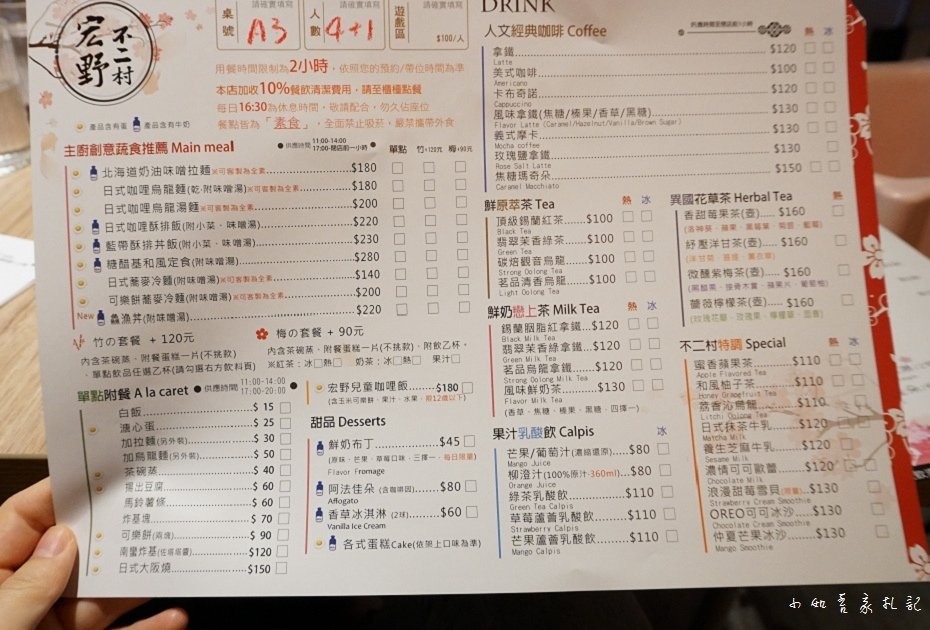 宏野
不二村
桌號
請確實填寫
A3
人數
請確實填寫
4+1
遊戲區
請確實填寫
$100/人
用餐時間限制為2小時,依照您的預約/帶位時間為準
本店加收10%餐飲清潔費用,請至櫃檯點餐
每日16:30為休息時間,敬請配合,勿久佔座位
餐點皆為「素食」,全面禁止吸菸,嚴禁攜帶外食
產品含有蛋 產品含有牛奶
主廚創意蔬食推薦 Main meal
供應時間 11:00-14:00
17:00-閉店前一小時
單點 竹+120元 梅+90元
北海道奶油味噌拉麵※可客製為全素 $180
日式咖哩烏龍麵(乾·附味噌湯)※可客製為全素 $180
日式咖哩烏龍湯麵※可客製為全素 $200
日式咖哩酥排飯(附小菜、味噌湯) $220
藍帶酥排丼飯(附小菜、味噌湯) $230
糖醋基和風定食(附味噌湯) $280
日式蕎麥冷麵(附味噌湯)※可客製為全素 $140
可樂餅蕎麥冷麵(附味噌湯)※可客製為全素 $200
New 鱻漁丼(附味噌湯) $220
竹の套餐 + 120元
內含茶碗蒸、附餐蛋糕一片(不挑款)
、單點飲品任選乙杯(請勾選右方飲料頁)
梅の套餐 + 90元
內含茶碗蒸、附餐蛋糕一片(不挑款)、附飲乙杯。
※紅茶:冰□熱□ 奶茶:冰□熱□ 果汁□
單點附餐 A la caret
供應時間 11:00-14:00
17:00-20:00
白飯 $ 15
溏心蛋 $ 25
加拉麵(另外裝) $ 30
加烏龍麵(另外裝) $ 50
茶碗蒸 $ 40
揚出豆腐 $ 60
馬鈴薯條 $ 60
炸基塊 $ 70
可樂餅(兩塊) $ 90
南蠻炸基(佐塔塔醬) $120
日式大阪燒 $150
宏野兒童咖哩飯 $180
(含玉米可樂餅、果汁、水果,限12歲以下)
甜品 Desserts
鮮奶布丁 $45
(原味、芒果、草莓口味,三擇一,每日限量)
Flavor Fromage
阿法佳朵 (含咖啡因) $80
Affogato
香草冰淇淋 (2球) $60
Vanilla Ice Cream
各式蛋糕Cake(依架上口味為準)
DRINK
人文經典咖啡 Coffee
熱 冰
拿鐵 $120
Latte
美式咖啡 $100
Americano
卡布奇諾 $120
Cappuccino
風味拿鐵(焦糖/榛果/香草/黑糖) $130
Flavor Latte (Caramel/Hazelnut/Vanilla/Brown Sugar)
義式摩卡 $130
Mocha coffee
玫瑰鹽拿鐵 $130
Rose Salt Latte
焦糖瑪奇朵 $150
Caramel Macchiato
鮮原萃茶 Tea 熱 冰
頂級錫蘭紅茶 $100
Black Tea
翡翠茉香綠茶 $100
Green Tea
碳焙觀音烏龍 $100
Strong Oolong Tea
茗品清香烏龍 $100
Light Oolong Tea
鮮奶戀上茶 Milk Tea 熱 冰
錫蘭胭脂紅拿鐵 $120
Black Milk Tea
翡翠茉香綠拿鐵 $120
Green Milk Tea
茗品烏龍拿鐵 $120
Strong Oolong Milk Tea
風味鮮奶茶 $130
Flavor Milk Tea
(香草、焦糖、榛果、黑糖,四擇一)
果汁乳酸飲 Calpis 冰
芒果/葡萄汁(濃縮還原) $80
Mango Juice
柳澄汁(100%原汁-360ml) $80
Orange Juice
綠茶乳酸飲 $110
Green Tea Calpis
草莓蘆薈乳酸飲 $110
Strawberry Calpis
芒果蘆薈乳酸飲 $110
Mango Calpis
異國花草茶 Herbal Tea 熱
香甜莓果茶(壺) $160
紓壓洋甘茶(壺) $160
微醺紫梅茶(壺) $160
薔薇檸檬茶(壺) $160
不二村特調 Special 熱 冰
蜜香蘋果茶 $110
Apple Flavored Tea
和風柚子茶 $110
Honey Grapefruit Tea
荔香沁烏龍 $110
Litchi Oolong Tea
日式抹茶牛乳 $120
Matcha Milk
養生芝麻牛乳 $120
Sesame Milk
濃情可可歐蕾 $120
Chocolate Milk
浪漫甜莓雪貝(限量) $130
Strawberry Cream Smoothie
OREO可可冰沙 $130
Chocolate Cream Smoothie
仲夏芒果冰沙 $130
Mango Smoothie
小如吾家札記